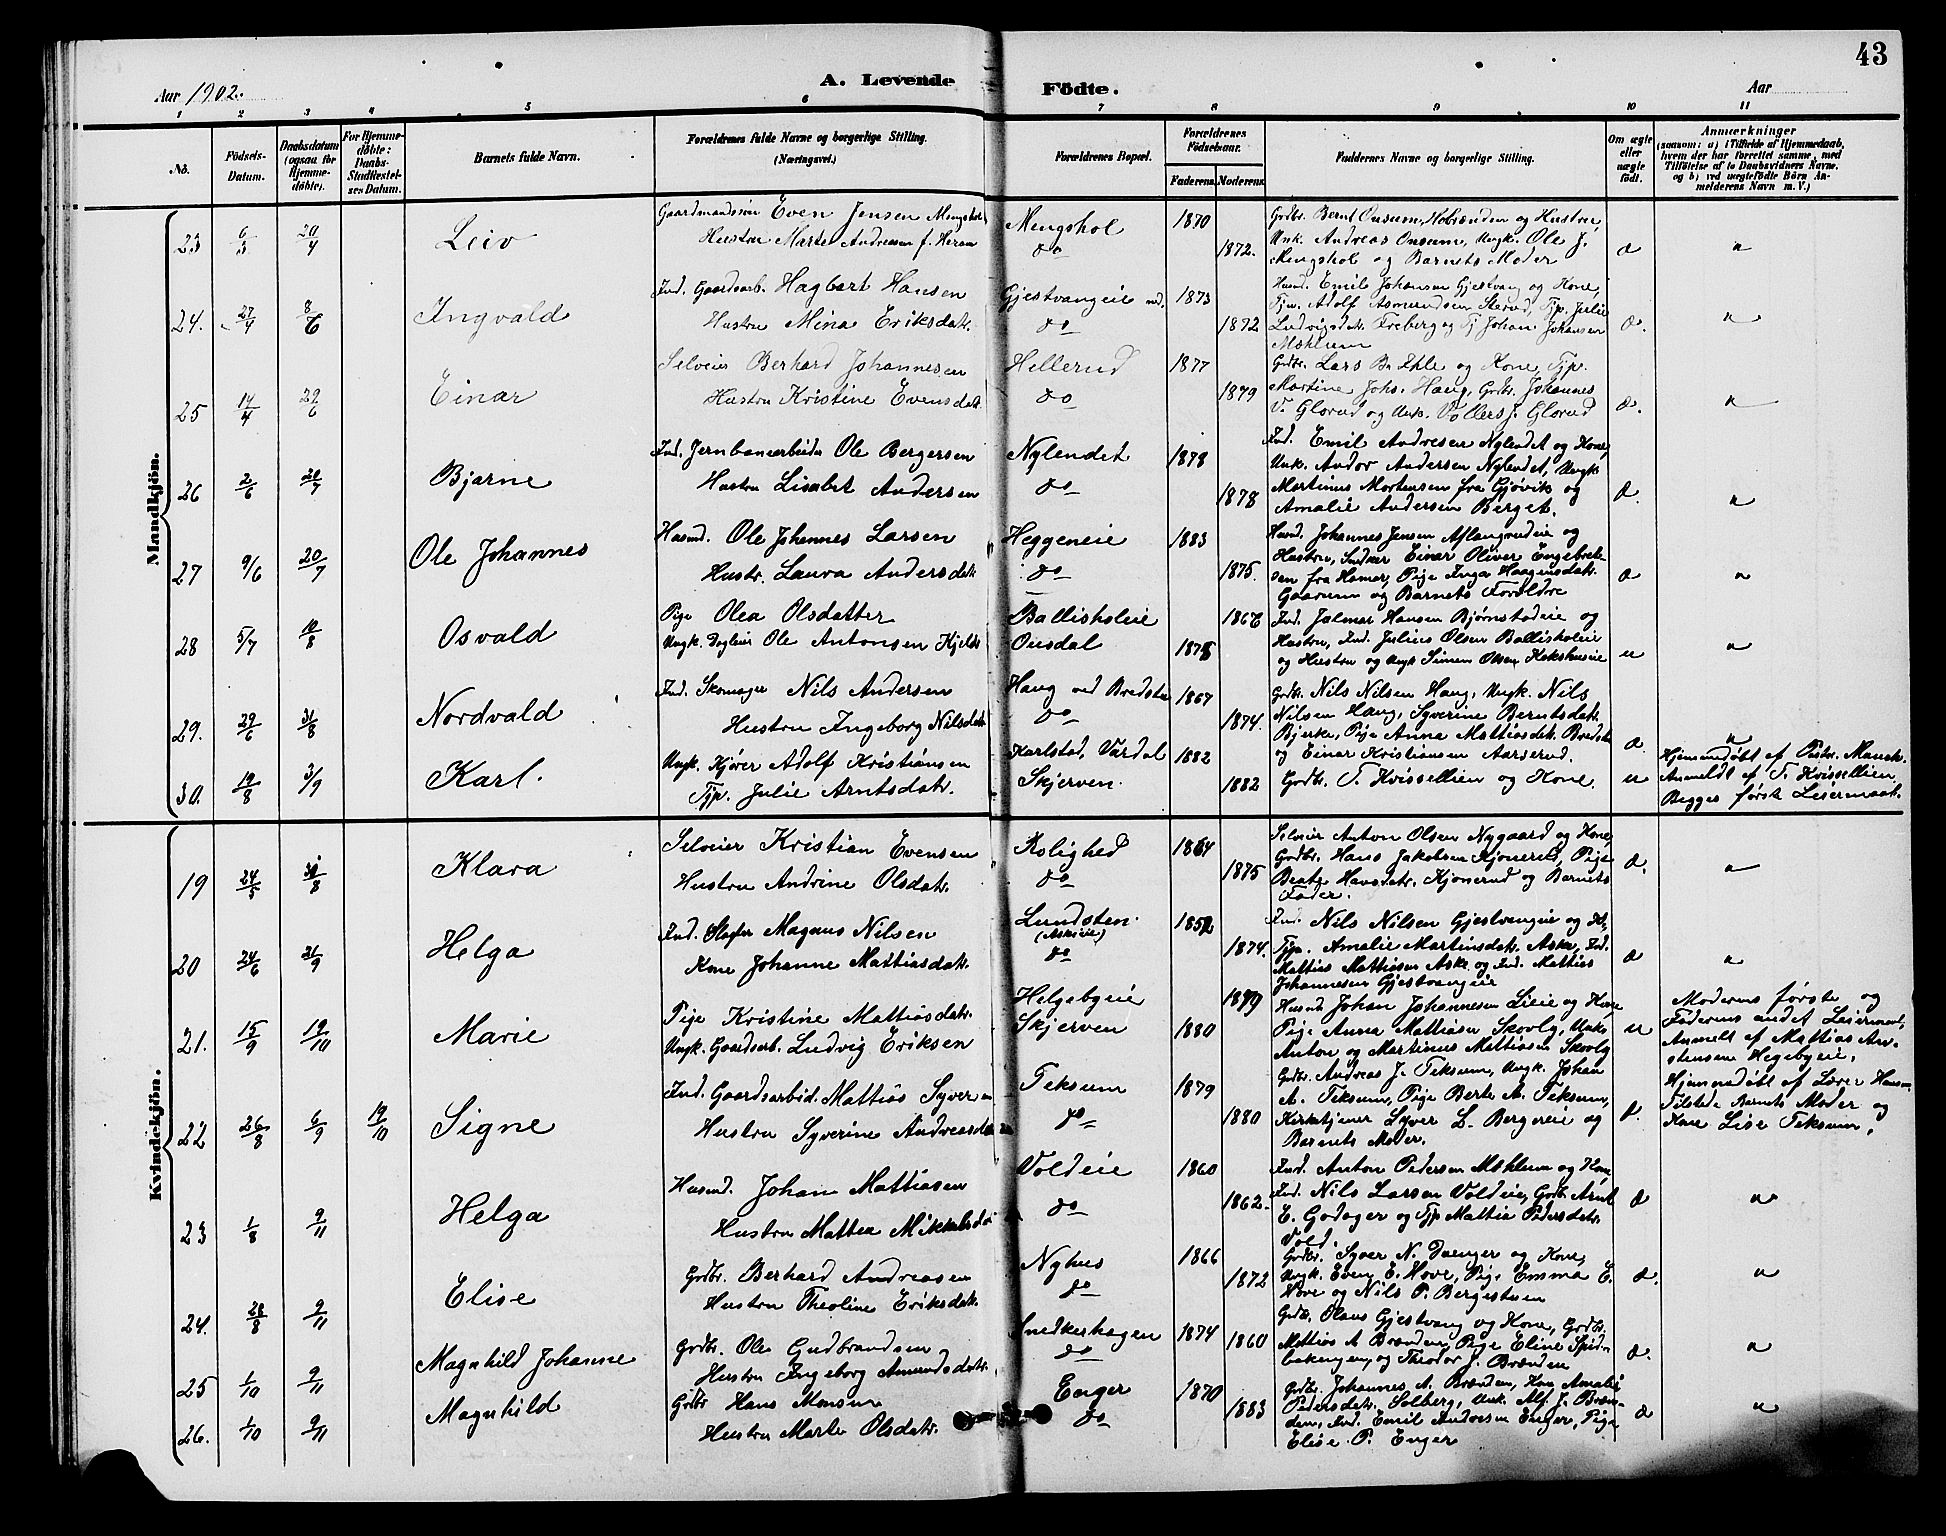 43
Aar 1902.
A. Levende Födte.
Aar
1 2 3 4 5 6 7 8 9 10 11
No.
Födsels-Datum.
Daabsdatum (ogsaa for Hjemme-døbte).
For Hjemme-døbte: Daabs-Stadfæstel-ses Datum.
Barnets fulde Navn.
Forældrenes fulde Navne og borgerlige Stilling. (Næringsvei.)
Forældrenes Bopæl.
Forældrenes Födselsaar.
Faderens. Moderens.
Faddernes Navne og borgerlige Stilling.
Om ægte eller uægte født.
Anmærkninger
(saasom: a) i Tilfælde af Hjemmedaab, hvem der har forrettet samme, med Tilføielse af to Daabsvidners Navne, og b) ved uægtefødte Börn Anmelderens Navn m. V.)
Mandkjön.
23 6/3 20/4 Leiv
Gaardmandssön Even Jensen Mengshol
Hustru Marte Andreasen f. Heram
Mengshol 1870
do 1872.
Grdbr. Bernt Onsum, og Hustru,
Unk. Andreas Onsum, Ungk. Ole J.
Mengshol og Barnets Moder
24. 27/4 8/6 Ingvald
Ind. Gaardsarb. Hagbart Hansen
Hustru Mina Eriksdatr.
Gjestvangeie 1873
do 1872
Husmd. Emil Johansen Gjestvang og Kone,
Tjm. Adolf Asmundsen Sterud, Tjp. Julie
Ludvigsdtr. Freberg og Tj Johan Johansen
Mæhlum
25 14/4 29/6 Einar
Selveier Berhard Johannesen
Hustru Kristine Evensdatr.
Hellerud 1877
do 1879
Grdbr. Lars Br. Ihle og Kone, Tjp.
Martine Johs. Haug, Grdbr. Johannes
V. Glorud og Unk. Vollers J. Glorud
26 2/6 20/7 Bjarne
Ind. Jernbanearbeider Ole Bergersen
Hustru Lisabet Andersen
Nylendet 1878
do 1878
Ind. Emil Andresen Nylendet og Kone,
Unk. Andor Andersen Nylendet, Ungk
Martinus Mortensen fra Gjøvik og
Amalie Andersen Berget.
27 9/6 20/7 Ole Johannes
Husmd. Ole Johannes Larsen
Hustr. Laura Andersdatr.
Heggeneie 1883
do 1875.
Husmd. Johannes Jensen Aflangrudeie og
Hustru, Snedker Einar Oliver Engebret-
sen fra Hamar, Pige Inga Haagensdatr.
Gaarum og Barnets Forældre
28 5/7 10/8 Osvald
Pige Olea Olsdatter
Ungk. Dagleier Ole Antonsen Kjelds
Ballisholeie 1866
Onsdal 1878
Ind. Jalmar Hansen Bjørnstadeie og
Hustru, Ind. Julius Olsen Ballisholeie
og Hustru og Ungk Simen Olsen Kokshuseie
29. 29/6 31/8 Nordvald
Ind. Skomager Nils Andersen
Hustru Ingeborg Nilsdatr
Haug ved Bredst 1867
do 1874.
Grdbr. Nils Nilsen Haug, Ungk. Nils
Nilsen Haug, Syverine Berntsdatr.
Bjerke, Pige Anna Mattiasdatr. Bredst
og Einar Kristiansen Aarderud.
30. 19/8 3/9 Karl.
Ungk. Kjører Adolf Kristiansen
Tjp. Julie Arntsdatr.
Karlstad, Vardal 1882
Skjerven. 1882
Grdbr. T. Kvissellien og Kone. u
Hjemmedøbt af
Anmeldt af T. Kvissellien
Begges første Leiermaal.
Kvindekjön.
19 24/5 31/8 Klara
Selveier Kristian Evensen
Hustru Andrine Olsdatr.
Rolighed 1864
do 1875
Selveier Anton Olsen Nygaard og Kone,
Grdbr. Hans Jakobsen Kjonerud, Pige
Beate Hansdatr. Kjonerud og Barnets
Fader.
20 24/6 21/9 Helga
Ind. Slagter Magnus Nilsen
Kone Johanne Mattiasdatr.
Lundsten. 1852
(Askeie)
do 1874.
Ind. Nils Nilsen Gjestvangeie og
Tjp. Amalie Martinsdatr. Aske, Ind.
Mattias Mattiasen Aske og Ind. Mattias
Johannesen Gjestvangeie
21. 15/9 19/10 Marie
Pige Kristine Mattiasdatr.
Ungk. Gaardsarb. Ludvig Eriksen
Helgebyeie 1879
Skjerven 1880
Husmd Johan Johannesen Lieie og Kone
Pige Anna Mattiasen Skovlg, Unks.
Anton og Martinus Mattiasen Skovlg u
Moderens første og
Faderens andet Leiermaal,
Anmeldt af Mattias An-
stensen Hegebyeie.
22 26/8 6/9 19/10 Signe
Ind. Gaardsarbeid. Mattias Syversen
Hustru Syverine Andreasdatr
Teksum 1879
do 1880
Grdbr. Andreas J. Teksum, Ungk. Johan
A. Teksum, Pige Berte A. Teksum,
Kirketjener Syver L. Bergseie og
Barnets Moder.
Hjemmedøbt af Lærer
Tilstede Barnets Moder og
Kone Lise Teksum,
23 1/8 9/11 Helga
Husmd. Johan Mattiasen
Hustru Mattea Mikkelsdatr
Voldeie 1860
do 1862.
Ind. Anton Pedersen Mæhlum og Kone,
Ind. Nils Larsen Voldeie, Grdb. Arnt
E. Godager og Tjp Mattia Pedersdatr.
Vold.
24. 28/8 9/11 Elise
Grdbr. Berhard Andreasen
Hustru Theoline Eriksdatr.
Nyhus 1866
do 1872
Grdbr. Syver N. Dænger og Kone,
Ungk. Even E. Hove, Pige Emma E.
Hove og Nils P. Bergestuen
25 1/10 9/11 Magnhild Johanne
Grdbr. Ole Gudbrandsen
Hustru Ingeborg Amundsdatr.
Snedkerhagen 1874
do 1860
Grdbr. Olaus Gjestvang og Kone, Grdbr.
Mattias A Brænden, Pige Eline Spid-
bakengen, og Theodor J. Brænden
26. 1/10 9/11 Magnhild
Grdbr Hans Monsen
Hustru Marte Olsdatr.
Enger 1870
do 1883
Grdbr. Johannes A. Brænden, Kone Amalie
Pedersdatr. Solberg, Unk. Alf. J. Bræn-
den, Ind. Emil Andresen Enger, Pige
Elise P. Enger